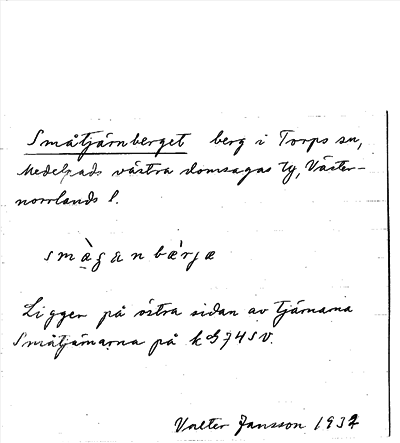 Småtjärnberget berg i Torps sn,
Medelpads västra domsagas tg, Väster-
norrlands l.
Ligger på östra sidan av tjärnarna
Småtjärnarna på
Valter Jansson 1932